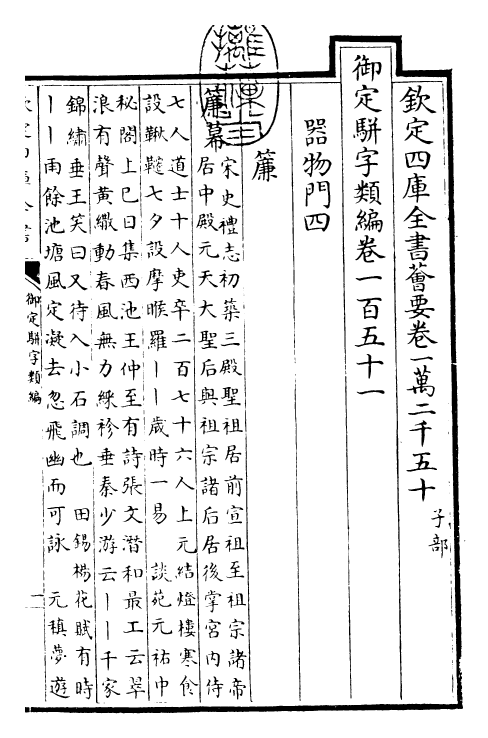 欽定四庫全書薈要卷一萬二千五十 子部
御定駢字類編卷一百五十一
器物門四
簾
簾幕 宋史禮志初築三殿聖祖居前宣祖至祖宗諸帝
居中殿元天大聖后與祖宗諸后居後掌宮内侍
七人道士十人吏卒二百七十六人上元結燈樓寒食
設鞦韆七夕設摩睺羅丨丨歲時一易 談苑元祐中
秘閣上巳日集西池王仲至有詩張文潛和最工云翠
浪有聲黄繖動春風無力綵衫垂秦少游云丨丨千家
錦繡垂王笑曰又待入小石調也 田錫楊花賦有時
丨丨雨餘池塘風定凝去忽飛幽而可詠 元稹夢遊
御定駢字類編